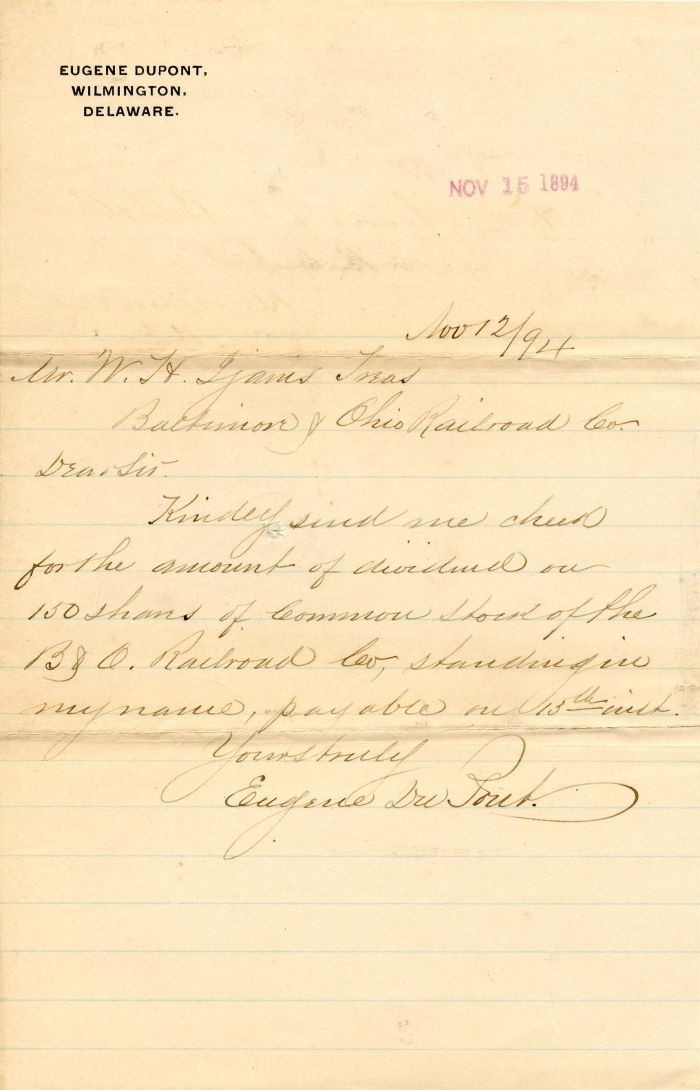 EUGENE DUPONT,
WILMINGTON,
DELAWARE.
NOV 15 1894
Nov 12/94
Mr. W. H. Ijams Treas
Baltimore & Ohio Railroad Co.
Dear Sir.
Kindly send me check
for the amount of dividend on
150 shares of Common stock of the
B & O. Railroad Co, standing in
my name, payable on 15th inst.
Yours truly
Eugene Du Pont.